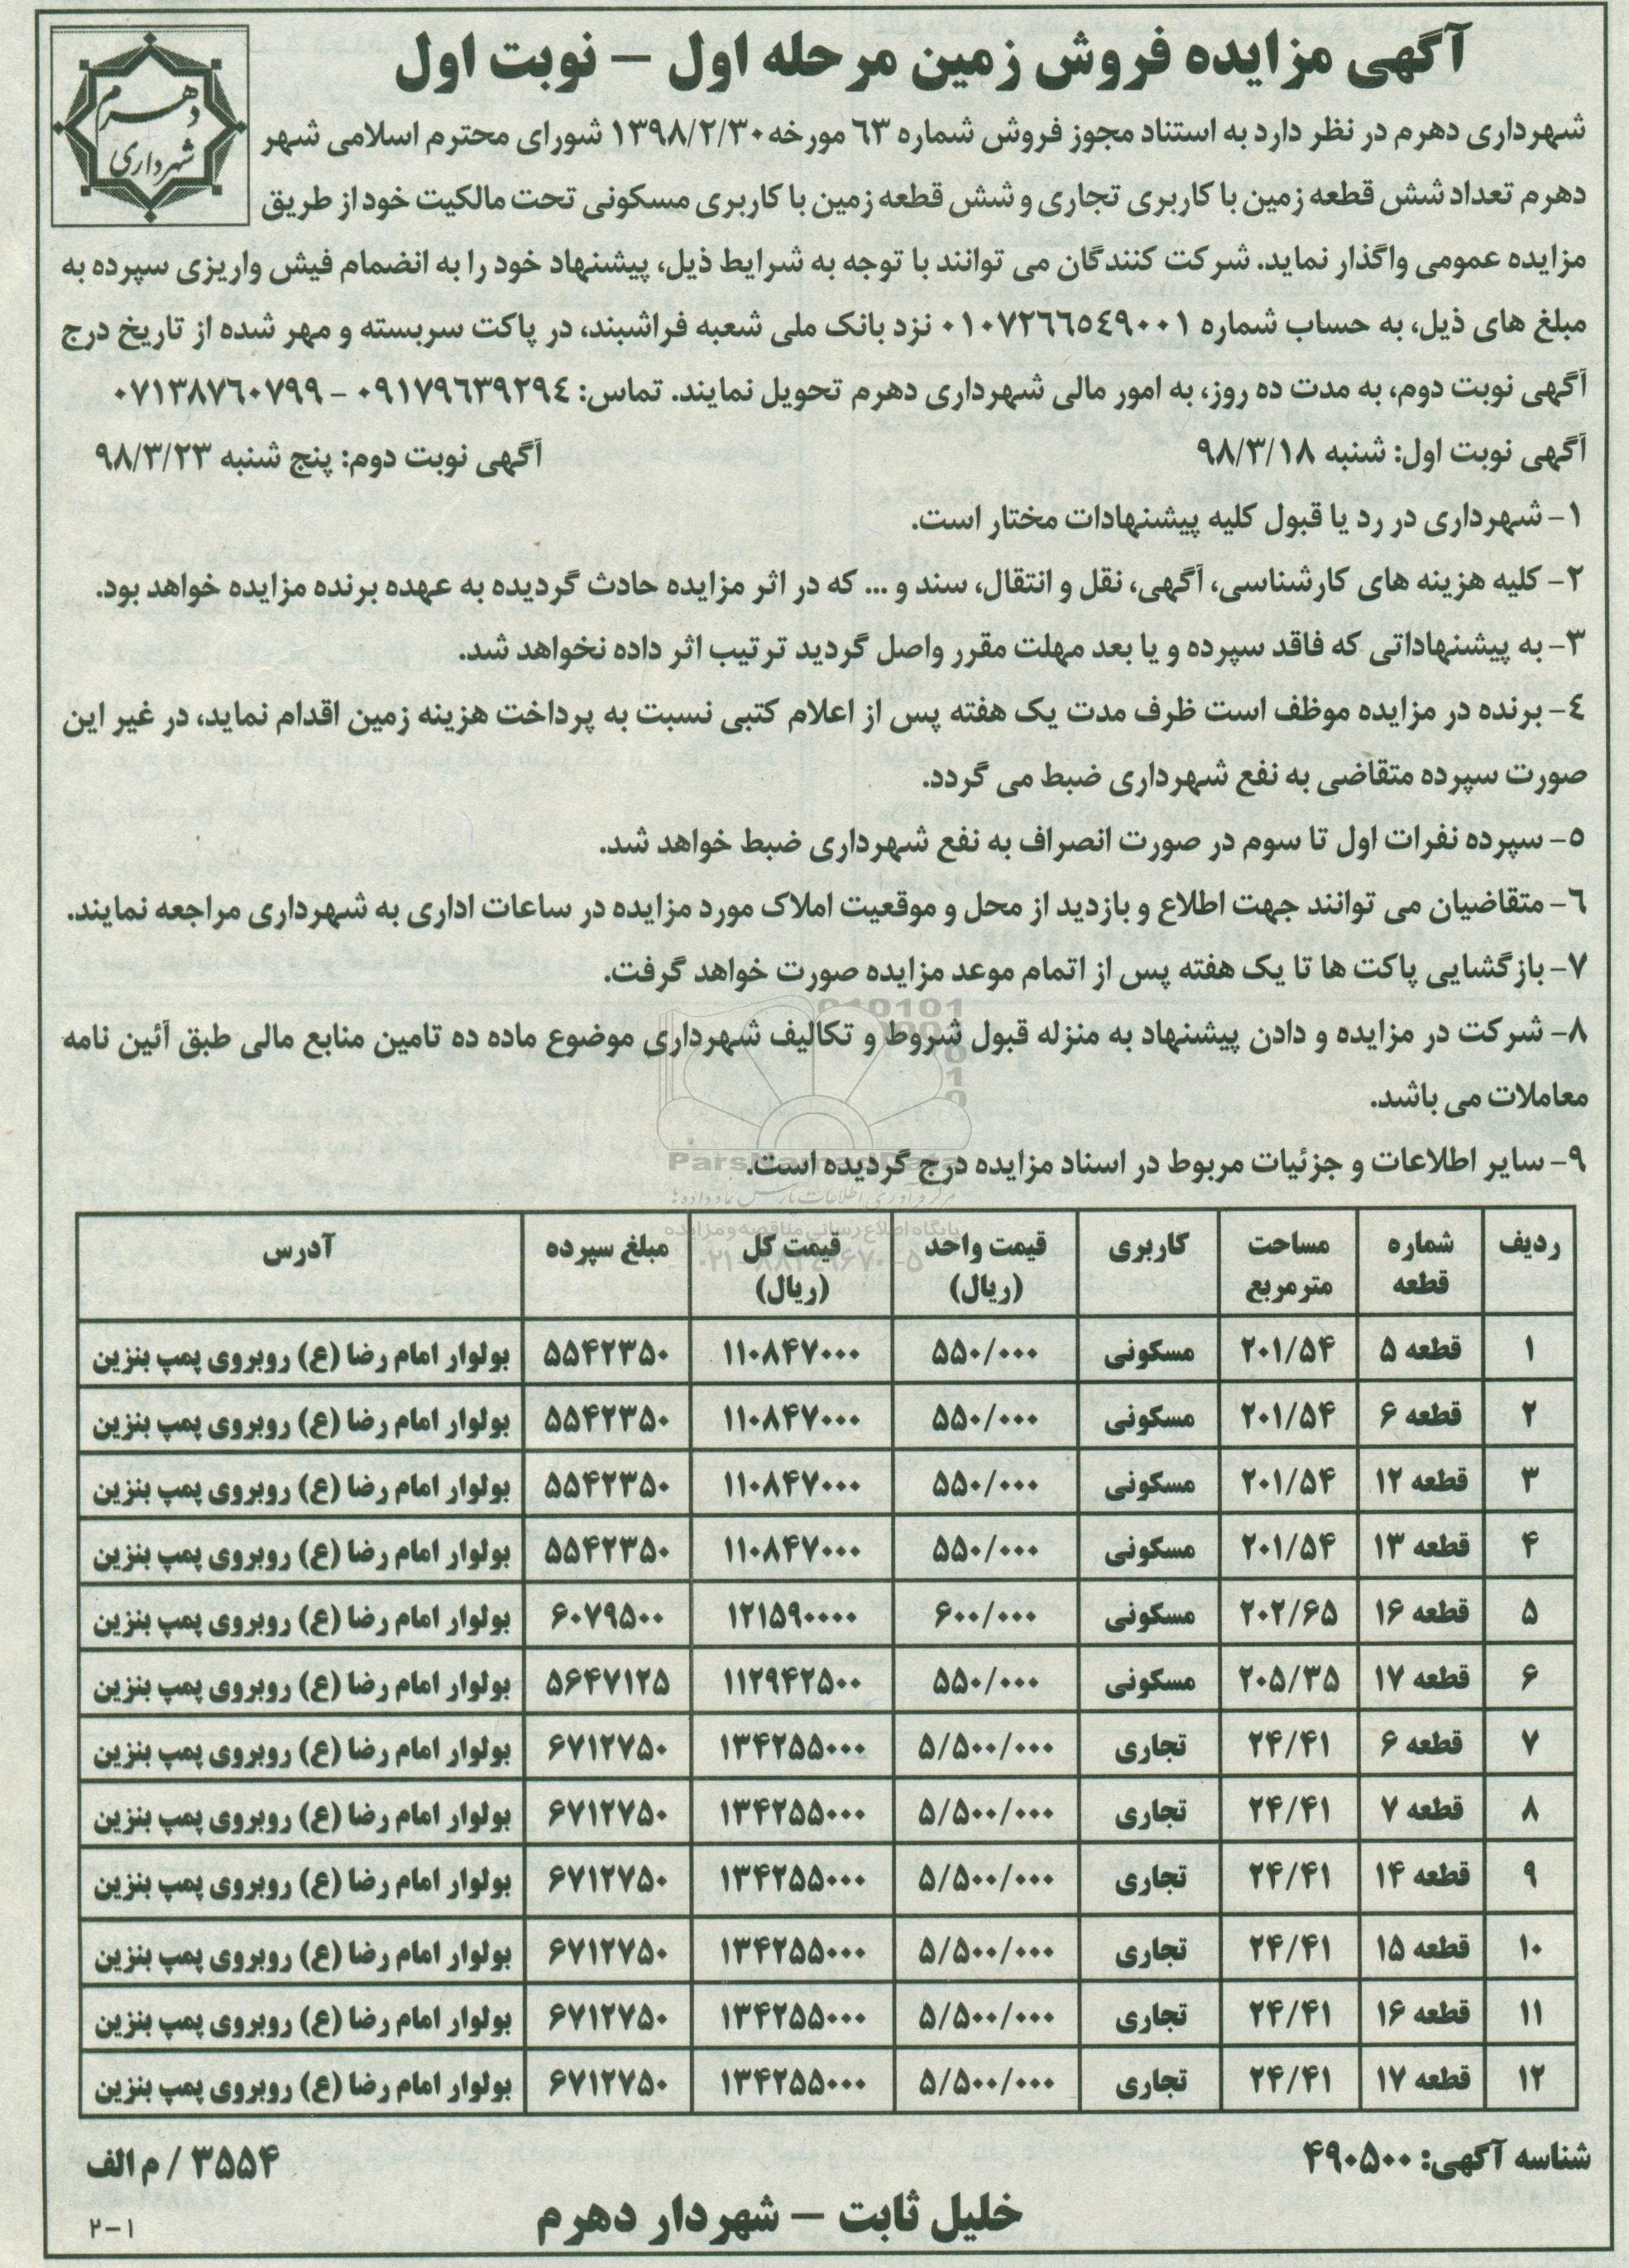 آگهی مزایده فروش زمین مرحله اول – نوبت اول
دهرم
شهرداری
شهرداری دهرم در نظر دارد به استناد مجوز فروش شماره ٦٣ مورخه ١٣٩٨/٢/٣٠ شورای محترم اسلامی شهر
دهرم تعداد شش قطعه زمین با کاربری تجاری و شش قطعه زمین با کاربری مسکونی تحت مالکیت خود از طریق
مزایده عمومی واگذار نماید. شرکت کنندگان می توانند با توجه به شرایط ذیل، پیشنهاد خود را به انضمام فیش واریزی سپرده به
مبلغ های ذیل، به حساب شماره ٠١٠٧٢٦٦٥٤٩٠٠١ نزد بانک ملی شعبه فراشبند، در پاکت سربسته و مهر شده از تاریخ درج
آگهی نوبت دوم، به مدت ده روز، به امور مالی شهرداری دهرم تحویل نمایند. تماس: ٠٩١٧٩٦٣٩٢٩٤ – ٠٧١٣٨٧٦٠٧٩٩
آگهی نوبت اول: شنبه ٩٨/٣/١٨ آگهی نوبت دوم: پنج شنبه ٩٨/٣/٢٣
١– شهرداری در رد یا قبول کلیه پیشنهادات مختار است.
٢– کلیه هزینه های کارشناسی، آگهی، نقل و انتقال، سند و ... که در اثر مزایده حادث گردیده به عهده برنده مزایده خواهد بود.
٣– به پیشنهاداتی که فاقد سپرده و یا بعد مهلت مقرر واصل گردید ترتیب اثر داده نخواهد شد.
٤– برنده در مزایده موظف است ظرف مدت یک هفته پس از اعلام کتبی نسبت به پرداخت هزینه زمین اقدام نماید، در غیر این
صورت سپرده متقاضی به نفع شهرداری ضبط می گردد.
٥– سپرده نفرات اول تا سوم در صورت انصراف به نفع شهرداری ضبط خواهد شد.
٦– متقاضیان می توانند جهت اطلاع و بازدید از محل و موقعیت املاک مورد مزایده در ساعات اداری به شهرداری مراجعه نمایند.
٧– بازگشایی پاکت ها تا یک هفته پس از اتمام موعد مزایده صورت خواهد گرفت.
٨– شرکت در مزایده و دادن پیشنهاد به منزله قبول شروط و تکالیف شهرداری موضوع ماده ده تامین منابع مالی طبق آئین نامه
معاملات می باشد.
٩– سایر اطلاعات و جزئیات مربوط در اسناد مزایده درج گردیده است.
ParsNamadData
پایگاه اطلاع رسانی مناقصه و مزایده
ردیف شماره قطعه مساحت مترمربع کاربری قیمت واحد (ریال) قیمت کل (ریال) مبلغ سپرده آدرس
۱ قطعه ۵ ۲۰۱/۵۴ مسکونی ۵۵۰/۰۰۰ ۱۱۰۸۴۷۰۰۰ ۵۵۴۲۳۵۰ بولوار امام رضا (ع) روبروی پمپ بنزین
۲ قطعه ۶ ۲۰۱/۵۴ مسکونی ۵۵۰/۰۰۰ ۱۱۰۸۴۷۰۰۰ ۵۵۴۲۳۵۰ بولوار امام رضا (ع) روبروی پمپ بنزین
۳ قطعه ۱۲ ۲۰۱/۵۴ مسکونی ۵۵۰/۰۰۰ ۱۱۰۸۴۷۰۰۰ ۵۵۴۲۳۵۰ بولوار امام رضا (ع) روبروی پمپ بنزین
۴ قطعه ۱۳ ۲۰۱/۵۴ مسکونی ۵۵۰/۰۰۰ ۱۱۰۸۴۷۰۰۰ ۵۵۴۲۳۵۰ بولوار امام رضا (ع) روبروی پمپ بنزین
۵ قطعه ۱۶ ۲۰۲/۶۵ مسکونی ۶۰۰/۰۰۰ ۱۲۱۵۹۰۰۰۰ ۶۰۷۹۵۰۰ بولوار امام رضا (ع) روبروی پمپ بنزین
۶ قطعه ۱۷ ۲۰۵/۳۵ مسکونی ۵۵۰/۰۰۰ ۱۱۲۹۴۲۵۰۰ ۵۶۴۷۱۲۵ بولوار امام رضا (ع) روبروی پمپ بنزین
۷ قطعه ۶ ۲۴/۴۱ تجاری ۵/۵۰۰/۰۰۰ ۱۳۴۲۵۵۰۰۰ ۶۷۱۲۷۵۰ بولوار امام رضا (ع) روبروی پمپ بنزین
۸ قطعه ۷ ۲۴/۴۱ تجاری ۵/۵۰۰/۰۰۰ ۱۳۴۲۵۵۰۰۰ ۶۷۱۲۷۵۰ بولوار امام رضا (ع) روبروی پمپ بنزین
۹ قطعه ۱۴ ۲۴/۴۱ تجاری ۵/۵۰۰/۰۰۰ ۱۳۴۲۵۵۰۰۰ ۶۷۱۲۷۵۰ بولوار امام رضا (ع) روبروی پمپ بنزین
۱۰ قطعه ۱۵ ۲۴/۴۱ تجاری ۵/۵۰۰/۰۰۰ ۱۳۴۲۵۵۰۰۰ ۶۷۱۲۷۵۰ بولوار امام رضا (ع) روبروی پمپ بنزین
۱۱ قطعه ۱۶ ۲۴/۴۱ تجاری ۵/۵۰۰/۰۰۰ ۱۳۴۲۵۵۰۰۰ ۶۷۱۲۷۵۰ بولوار امام رضا (ع) روبروی پمپ بنزین
۱۲ قطعه ۱۷ ۲۴/۴۱ تجاری ۵/۵۰۰/۰۰۰ ۱۳۴۲۵۵۰۰۰ ۶۷۱۲۷۵۰ بولوار امام رضا (ع) روبروی پمپ بنزین
شناسه آگهی: ۴۹۰۵۰۰ ۳۵۵۴ / م الف
خلیل ثابت – شهردار دهرم
۲–۱